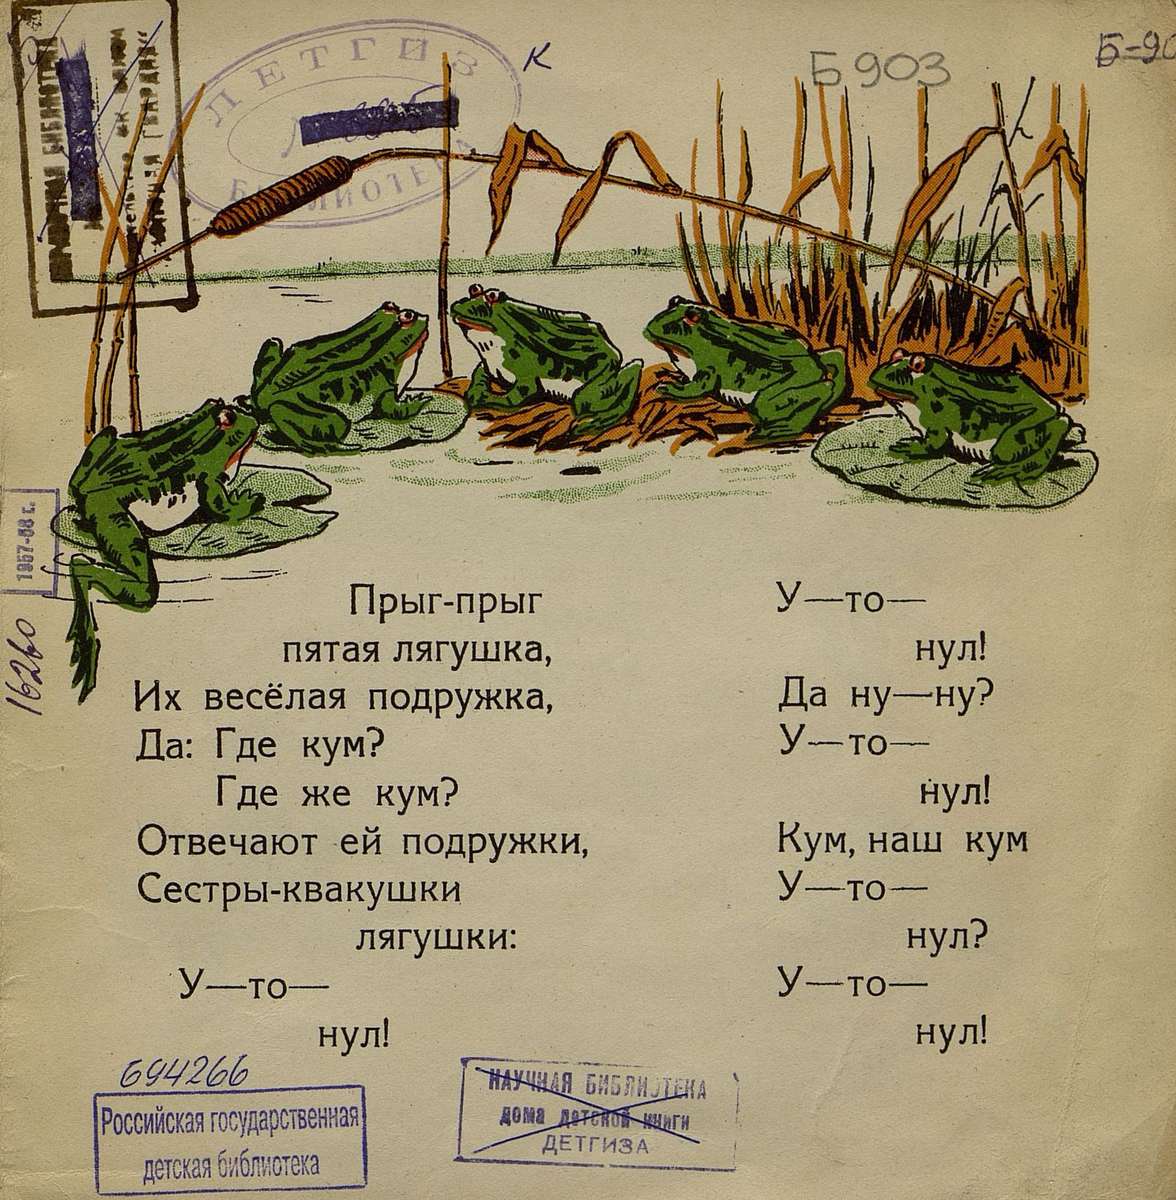 К
Б903
ДЕТГИЗ
БИБЛИОТЕКА
1957-58 г.
16260
Прыг-прыг
пятая лягушка,
Их весёлая подружка,
Да: Где кум?
Где же кум?
Отвечают ей подружки,
Сестры-квакушки
лягушки:
У—то—
нул!
У—то—
нул!
Да ну—ну?
У—то—
нул!
Кум, наш кум
У—то—
нул?
У—то—
нул!
694266
Российская государственная
детская библиотека
НАУЧНАЯ БИБЛИОТЕКА
дома детской книги
ДЕТГИЗА